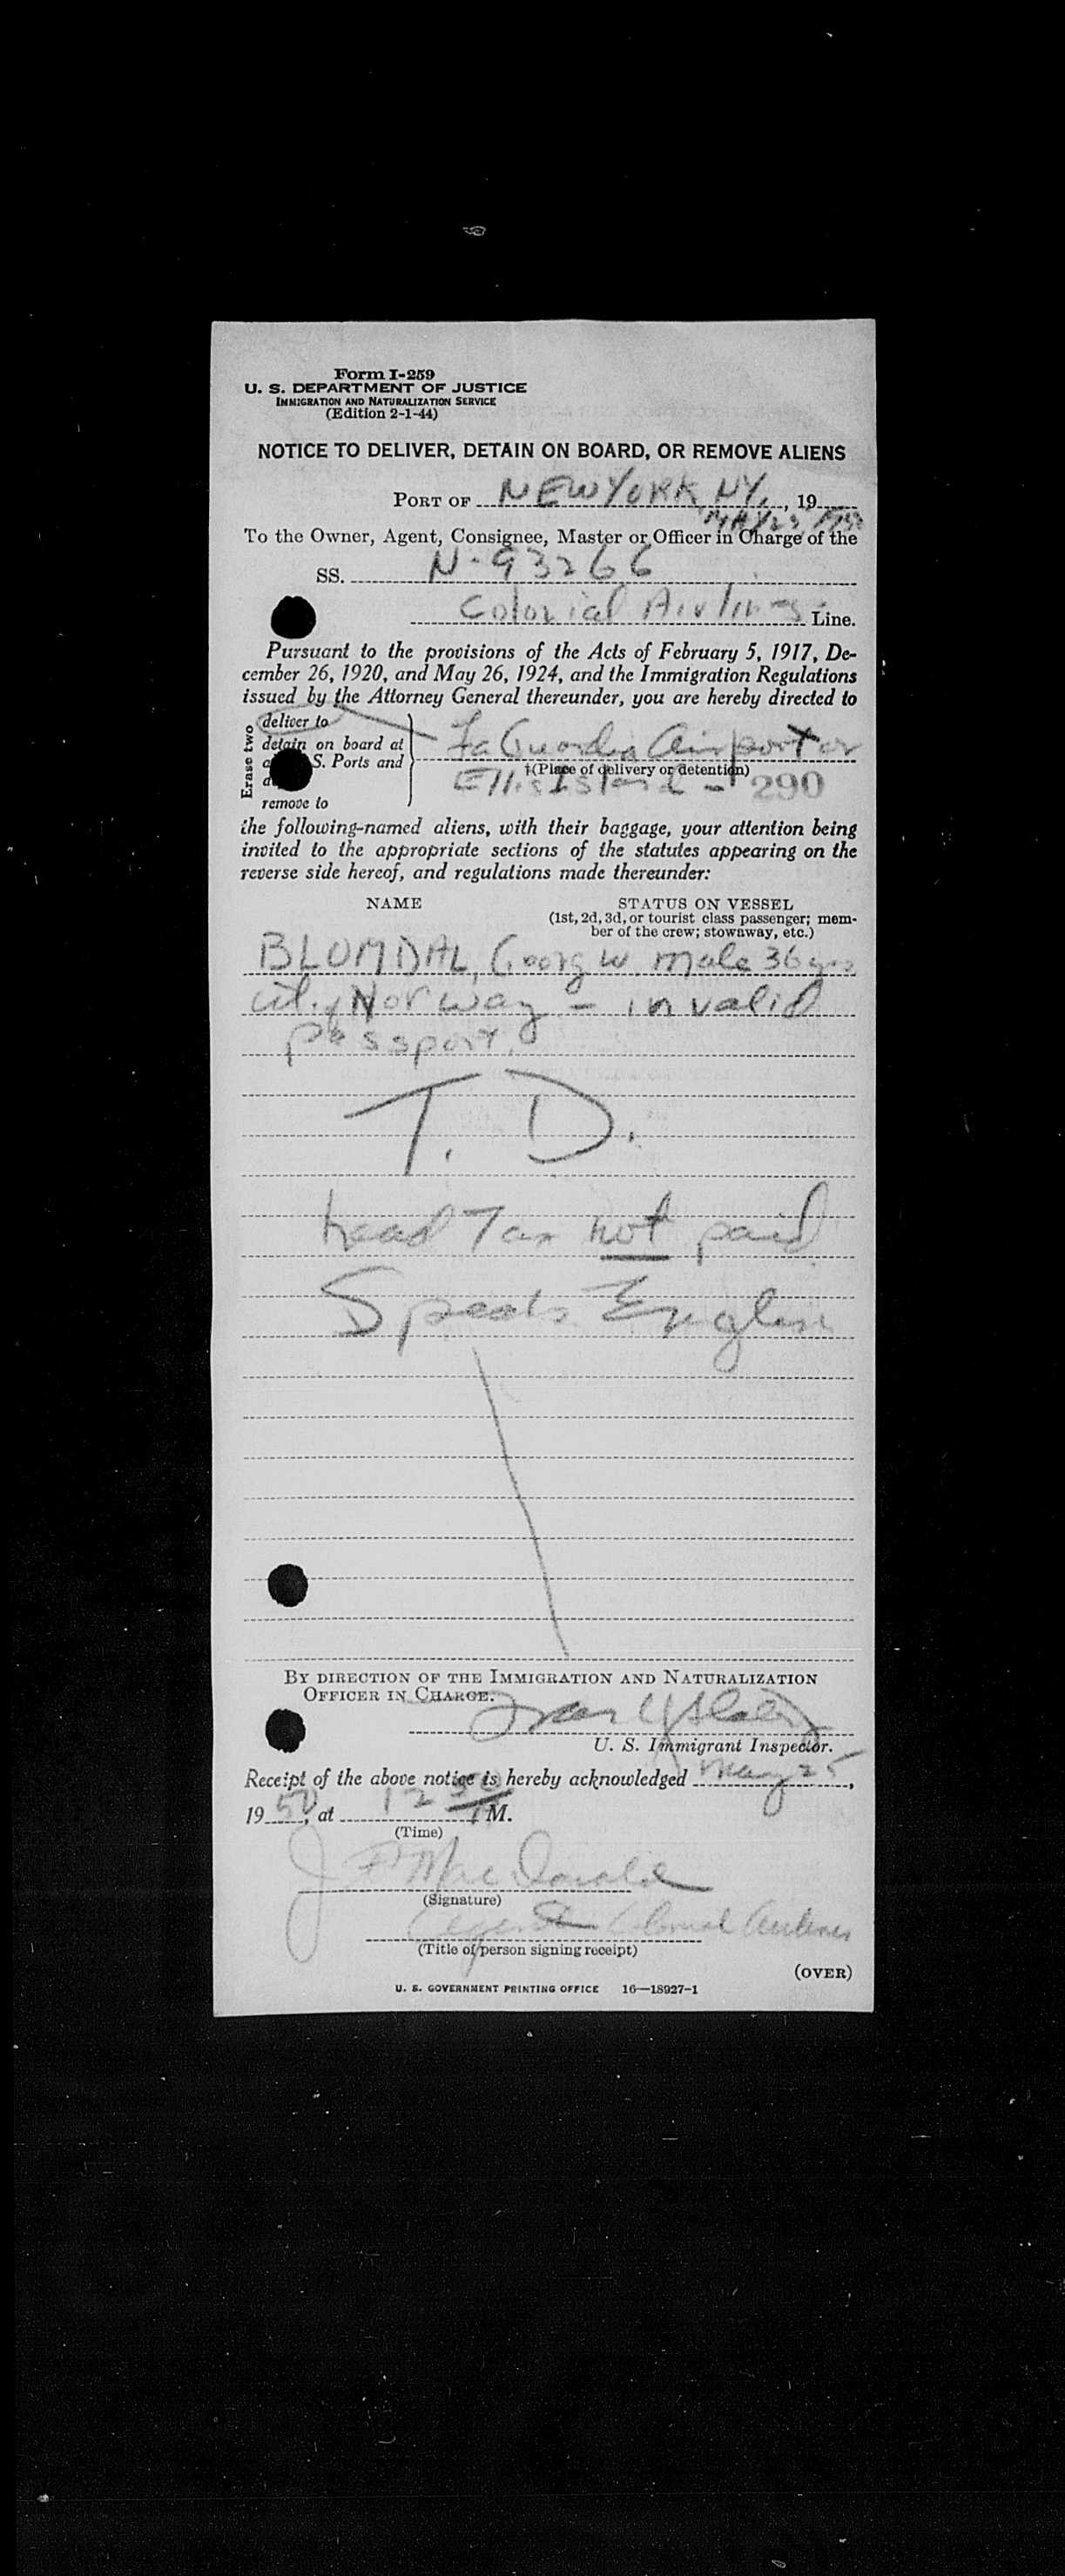 Form I-259
U. S. DEPARTMENT OF JUSTICE
IMMIGRATION AND NATURALIZATION SERVICE
(Edition 2-1-44)
NOTICE TO DELIVER, DETAIN ON BOARD, OR REMOVE ALIENS
PORT OF NEW YORK NY, 19
MAY 25, 1950
To the Owner, Agent, Consignee, Master or Officer in Charge of the
SS. N-93266
Colonial Airlines Line.
Pursuant to the provisions of the Acts of February 5, 1917, De-
cember 26, 1920, and May 26, 1924, and the Immigration Regulations
issued by the Attorney General thereunder, you are hereby directed to
Erase two
deliver to
detain on board at
S. Ports and
remove to
La Guardia Airport or
†(Place of delivery or detention)
Ellis Island - 290
the following-named aliens, with their baggage, your attention being
invited to the appropriate sections of the statutes appearing on the
reverse side hereof, and regulations made thereunder:
NAME STATUS ON VESSEL
(1st, 2d, 3d, or tourist class passenger; mem-
ber of the crew; stowaway, etc.)
BLOMDAL, Georg W. male 36 yrs
cit. Norway - invalid
passport.
T. D.
head Tax not paid
Speaks English
BY DIRECTION OF THE IMMIGRATION AND NATURALIZATION
OFFICER IN CHARGE.
U. S. Immigrant Inspector.
Receipt of the above notice is hereby acknowledged May 25,
1950, at 12 30 M.
(Time)
J F MacDonald
(Signature)
Agent Colonial Airlines
(Title of person signing receipt)
(OVER)
U. S. GOVERNMENT PRINTING OFFICE 16—18927-1